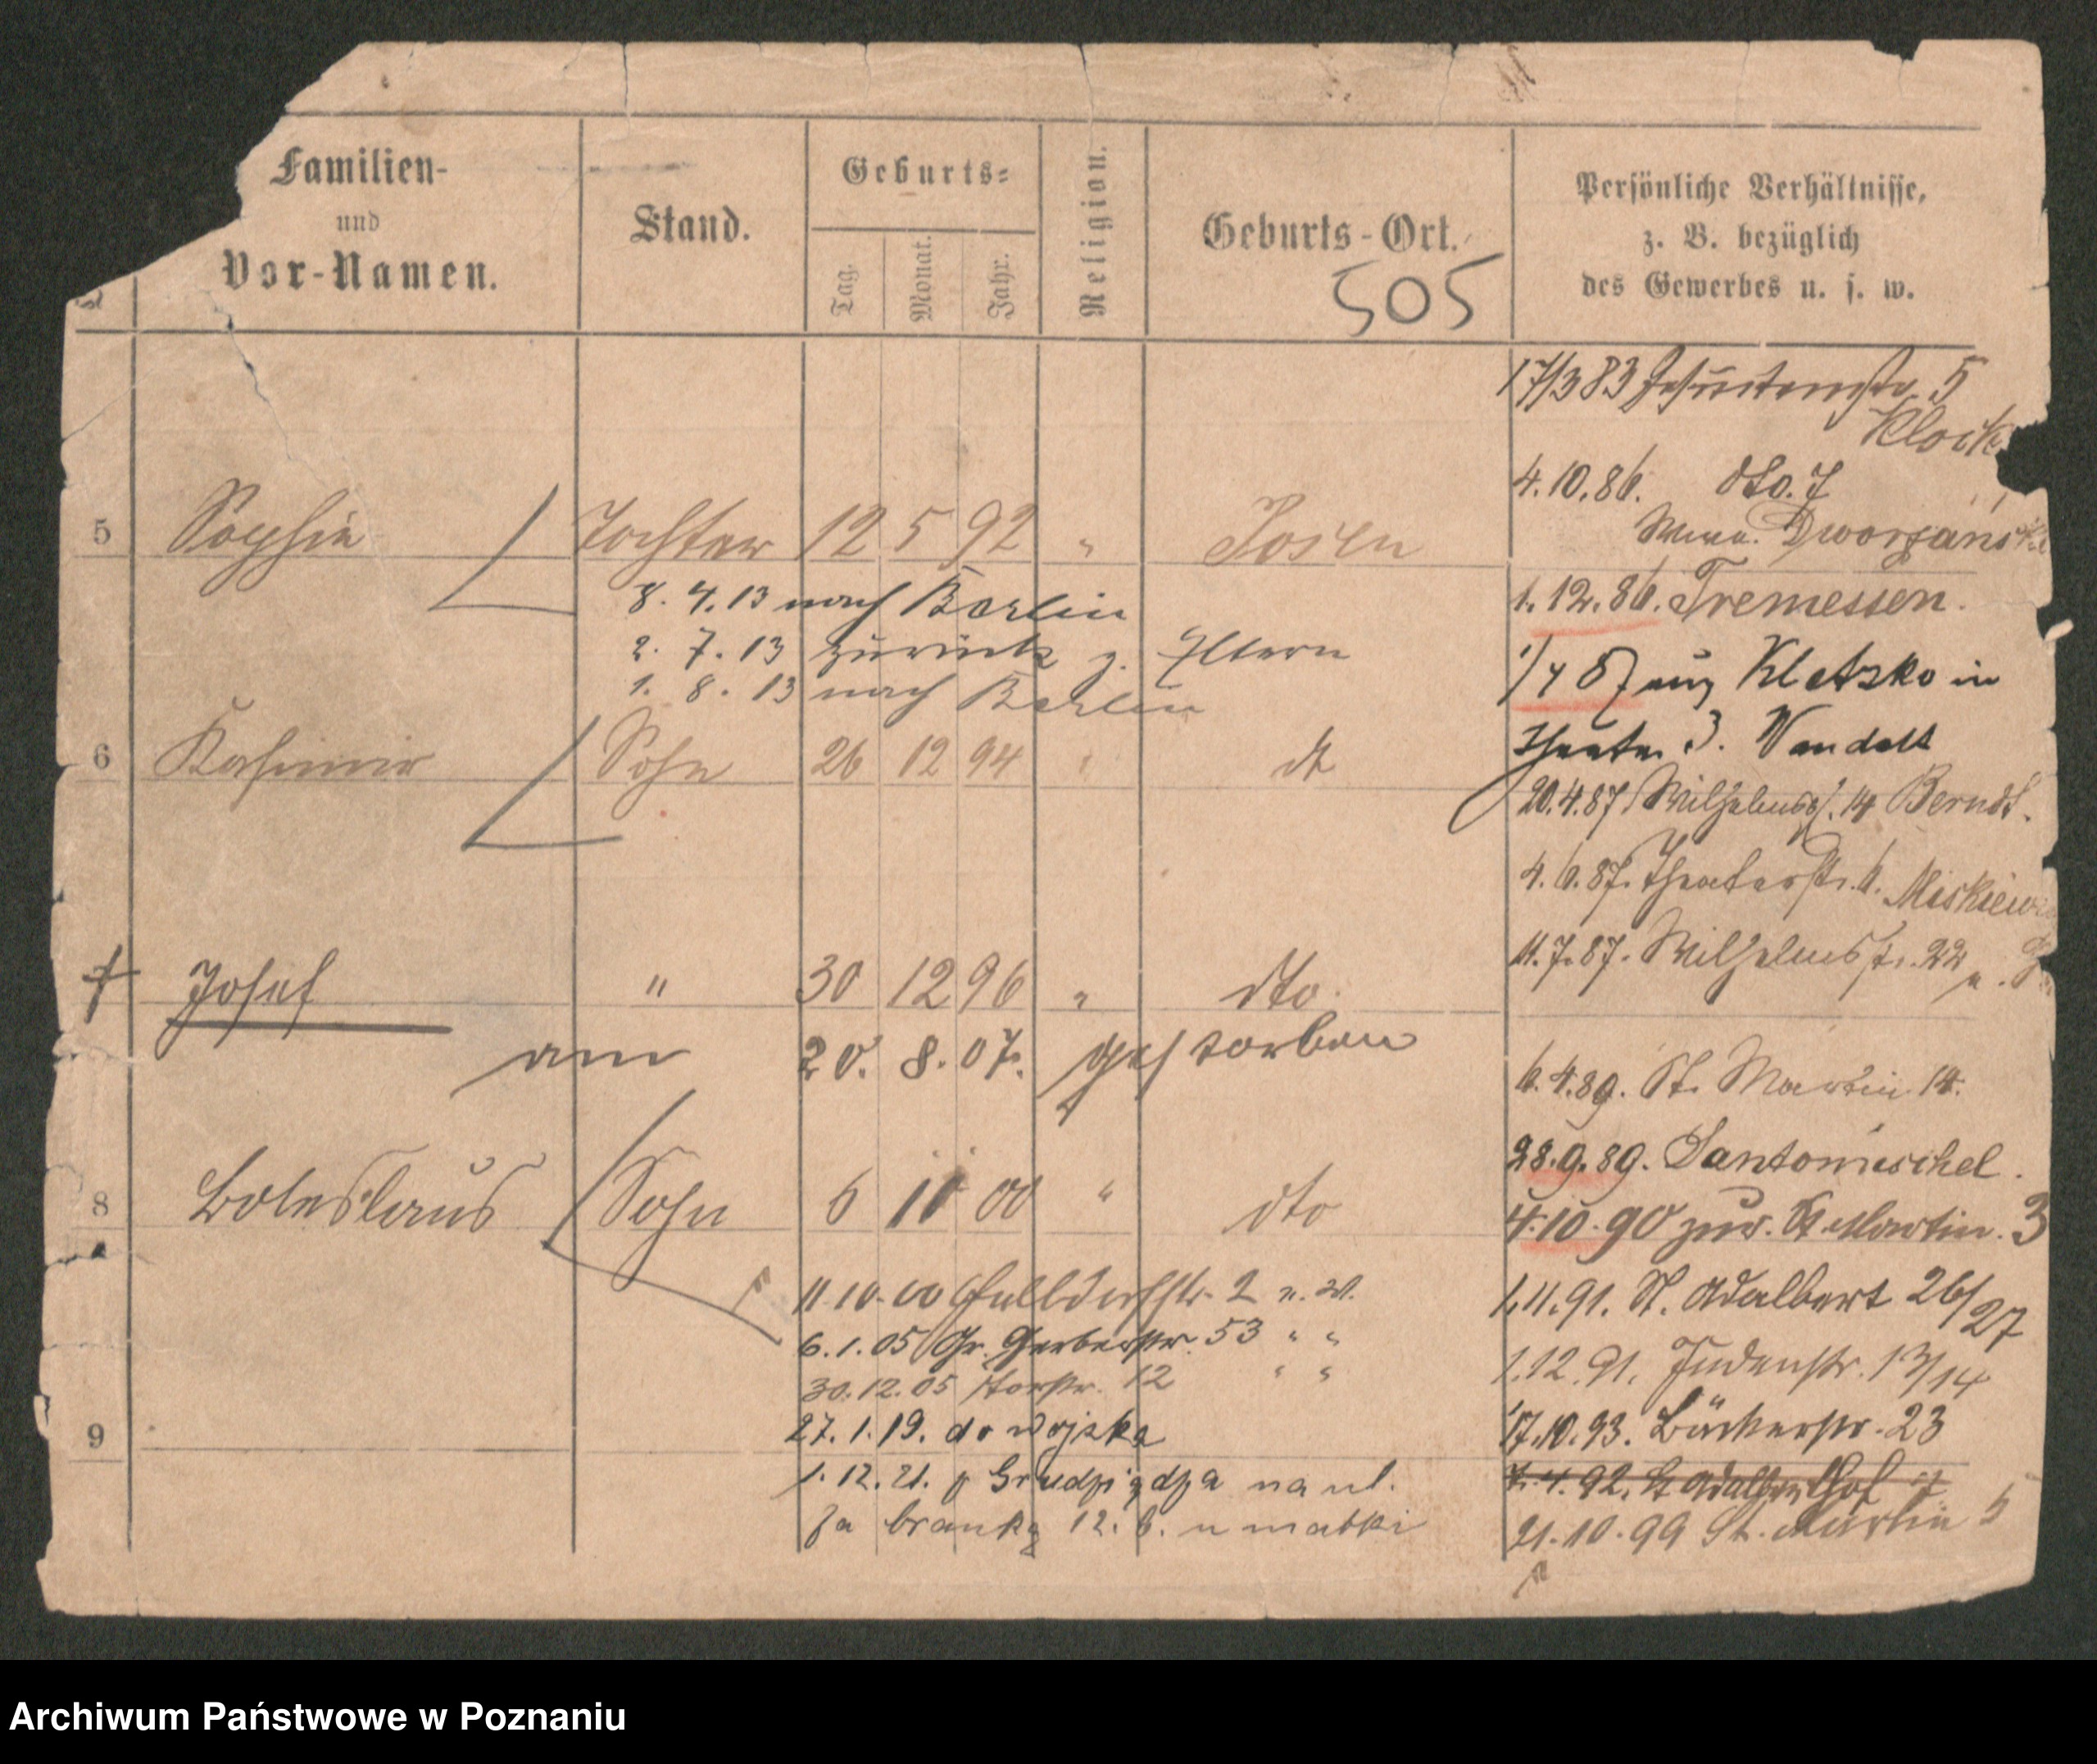 Familien-
und
Vor-Namen.
Stand.
Geburts-
Tag.
Monat.
Jahr.
Religion.
Geburts-Ort.
505
Persönliche Verhältnisse,
z. B. bezüglich
des Gewerbes u. s. w.
17/3 83 Jesuitenstr. 5
4.10.86. dto. 7
5 Sophie Tochter 12 5 92 " Posen
8. 4. 13 nach Berlin
2. 7. 13 zurück z. Eltern
1. 8. 13 nach Berlin
1.12.86. Tremessen.
1/4 87 aus Kletzko in
Theater 3. Wandelt
6 Kasimir Sohn 26 12 94 " dt
20.4.87 Wilhelmspl. 14 Berndt.
4.6.87. Theaterstr. 6.
11.7.87. Wilhelmstr. 22
† Josef " 30 12 96 " dto.
am 20. 8. 07. gestorben
6.4.89. St. Martin 14.
28.9.89. Santomischel.
4.10.90 zur. St Martin. 3
8 Boleslaus Sohn 6 10 00 " dto
1.11.91. St. Adalbert 26/27
1.12.91. Judenstr. 13/14
17.10.93. Bäckerstr. 23
7.4.92. St Adalbert
21.10.99 St. Martin
11.10.00 Halbdorfstr. 2 n. W.
6.1.05 Gr. Gerberstr. 53 " "
30.12.05 Torstr. 12 " "
27.1.19. do wojska
9
1.12.21. z Grudziądza na ul.
Za bramką 12. b. u matki
Archiwum Państwowe w Poznaniu